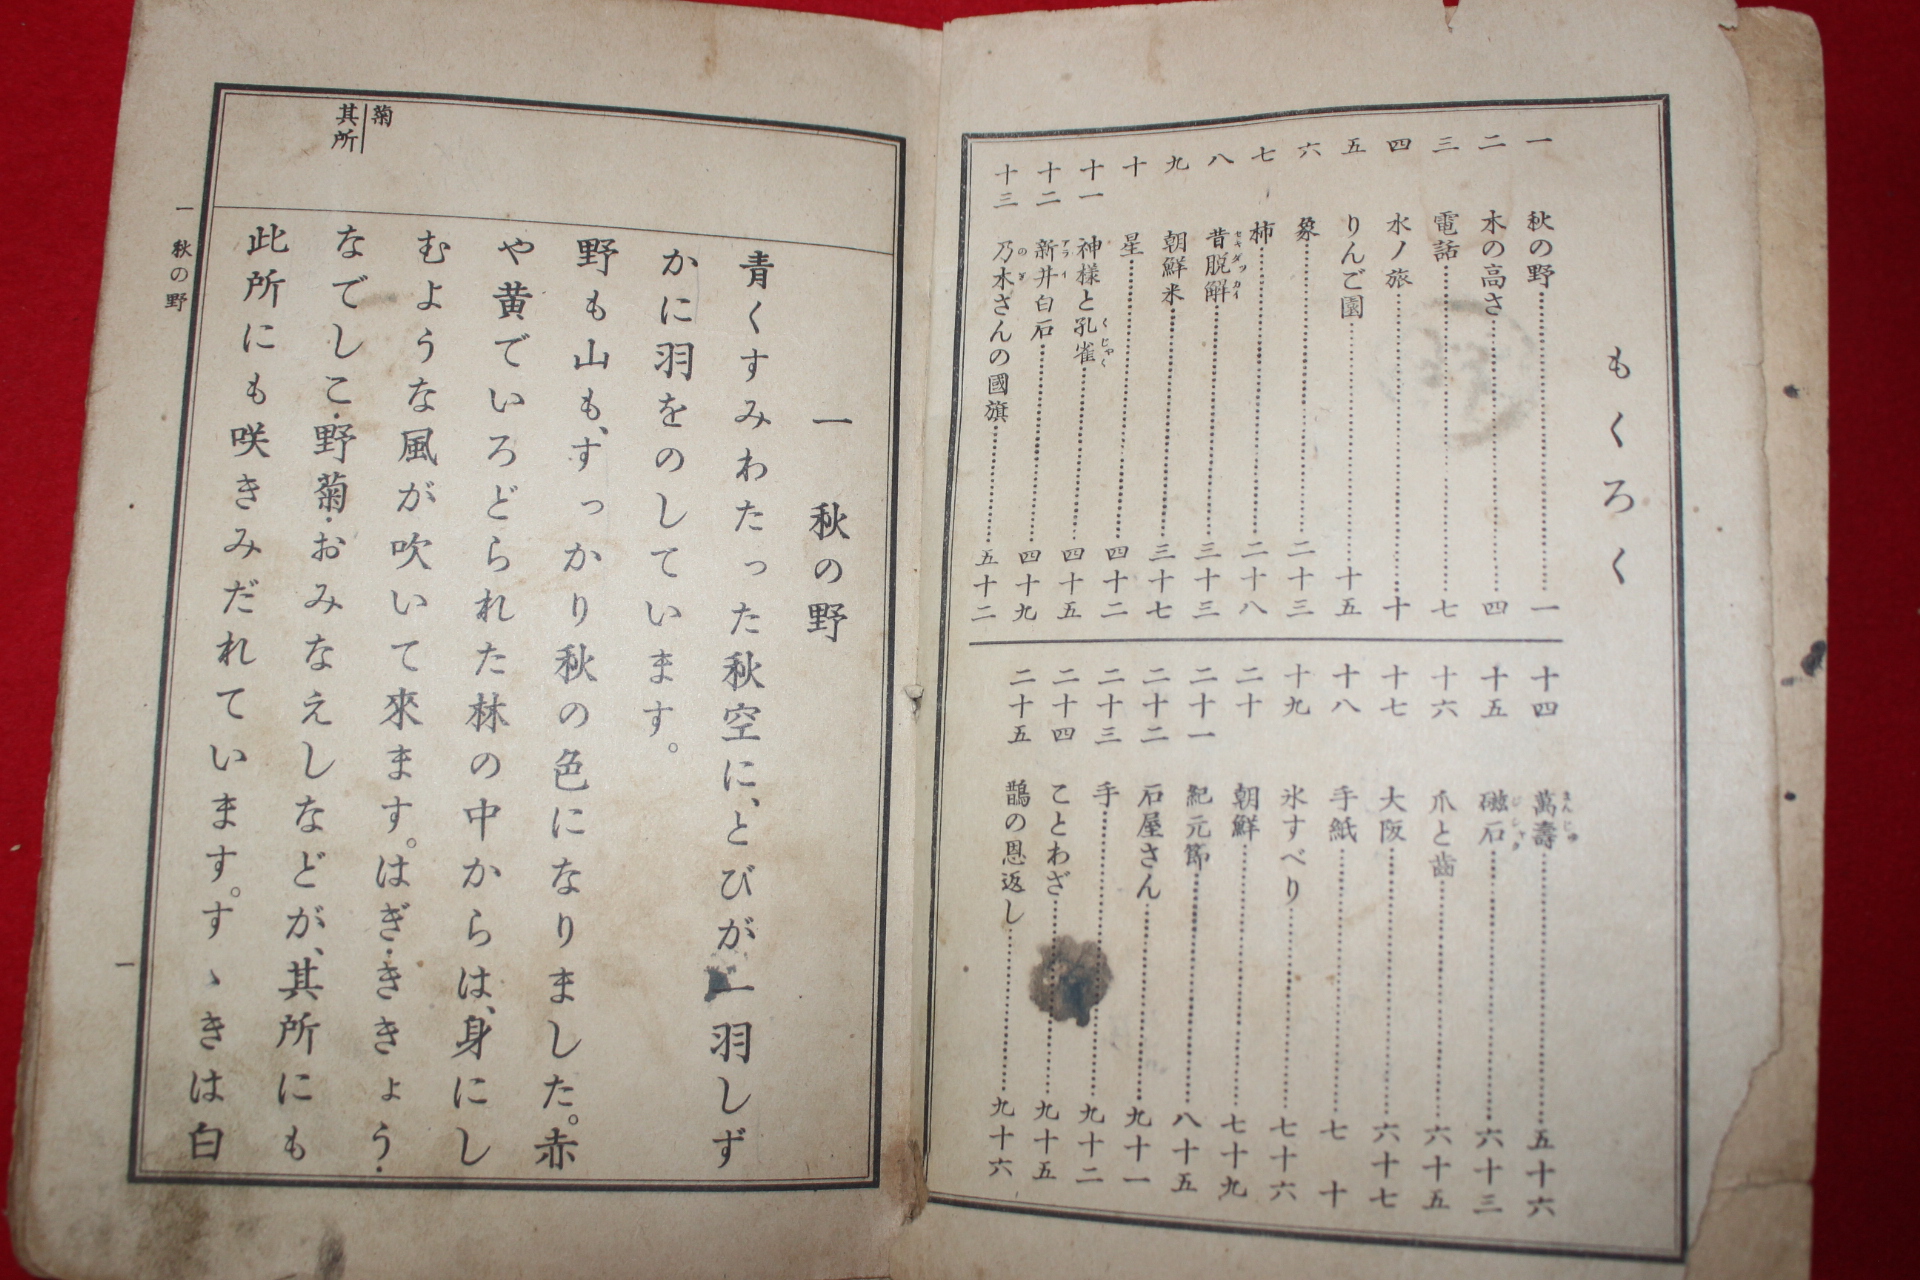 もくろく
一 秋の野 一
二 木の高さ 四
三 電話 七
四 水ノ旅 十
五 りんご園 十五
六 象 二十三
七 柿 二十八
八 昔脱解 三十三
セキダッカイ
九 朝鮮米 三十七
十 星 四十二
十一 神樣と孔雀 四十五
くじゃく
十二 新井白石 四十九
アライ
十三 乃木さんの國旗 五十二
のぎ
十四 萬壽 五十六
まんじゅ
十五 磁石 六十三
じしゃく
十六 爪と齒 六十五
十七 大阪 六十七
十八 手紙 七十
十九 氷すべり 七十六
二十 朝鮮 七十九
二十一 紀元節 八十五
二十二 石屋さん 九十一
二十三 手 九十二
二十四 ことわざ 九十五
二十五 鵲の恩返し 九十六
菊
其所
一 秋の野
青くすみわたった秋空に、とびが一羽しず
かに羽をのしています。
野も山も、すっかり秋の色になりました。赤
や黄でいろどられた林の中からは、身にし
むような風が吹いて來ます。はぎ・ききょう・
なでしこ・野菊・おみなえしなどが、其所にも
此所にも咲きみだれています。すゝきは白
一 秋の野
一